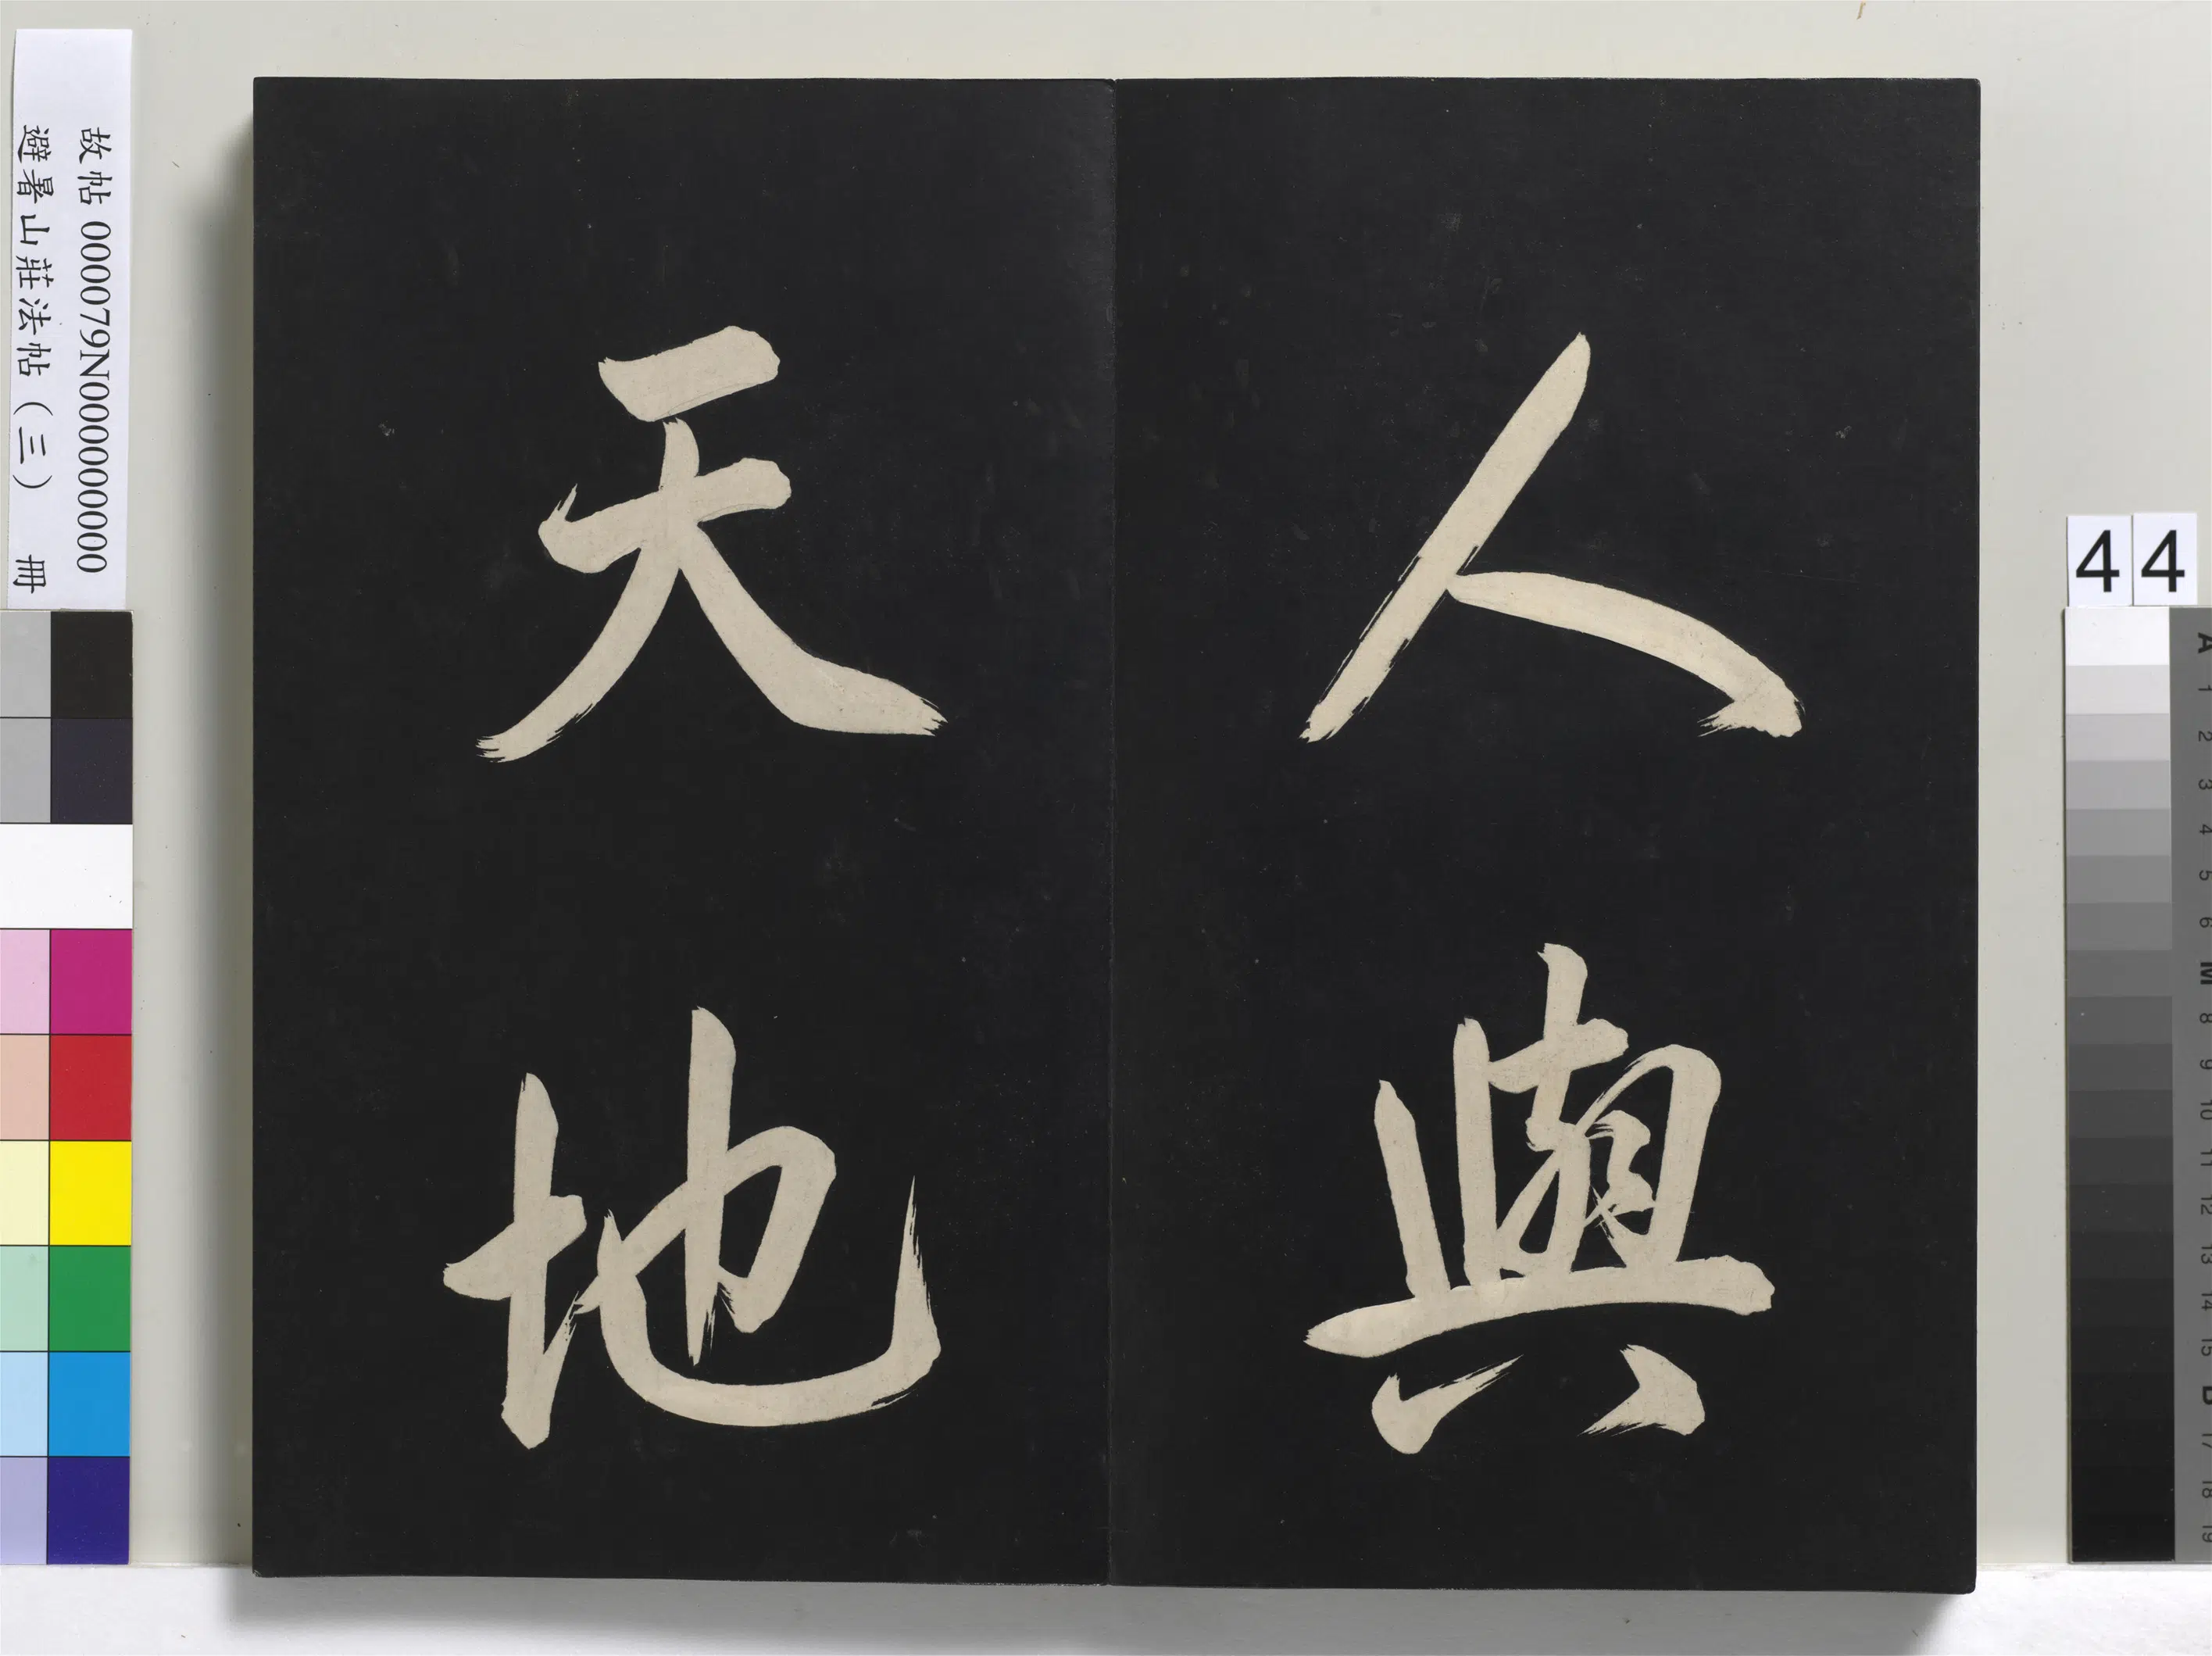 人與
天地
故帖 000079N000000000
避暑山莊法帖（三） 冊
44
A 1 2 3 4 5 6 M 8 9 10 11 12 13 14 15 B 17 18 19